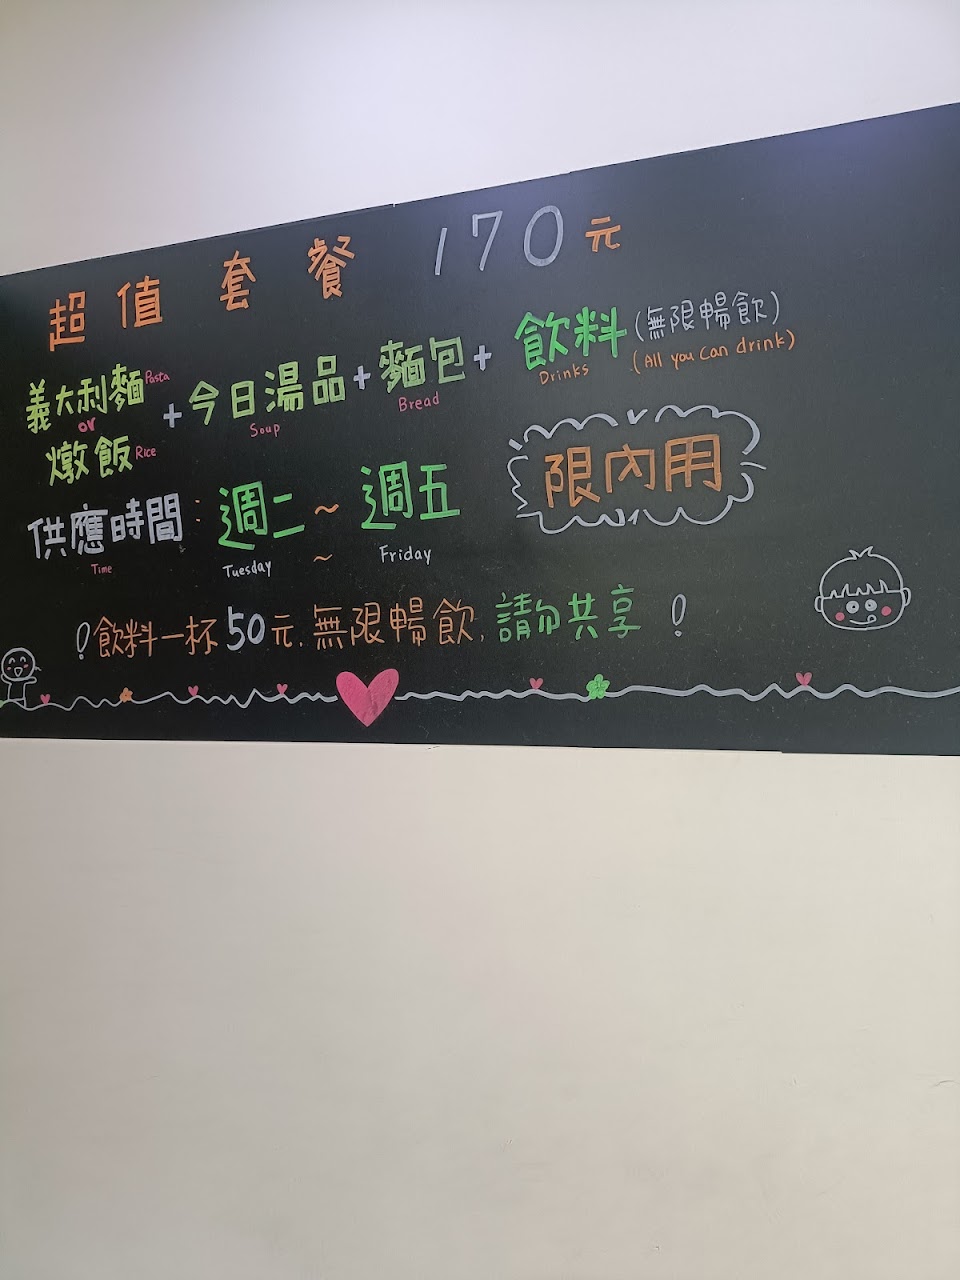 超值套餐 170元
義大利麵 Pasta or 燉飯 Rice + 今日湯品 Soup + 麵包 Bread + 飲料 Drinks (無限暢飲) (All you can drink)
供應時間 Time : 週二 Tuesday ~ 週五 Friday
限內用
! 飲料一杯50元, 無限暢飲, 請勿共享 !